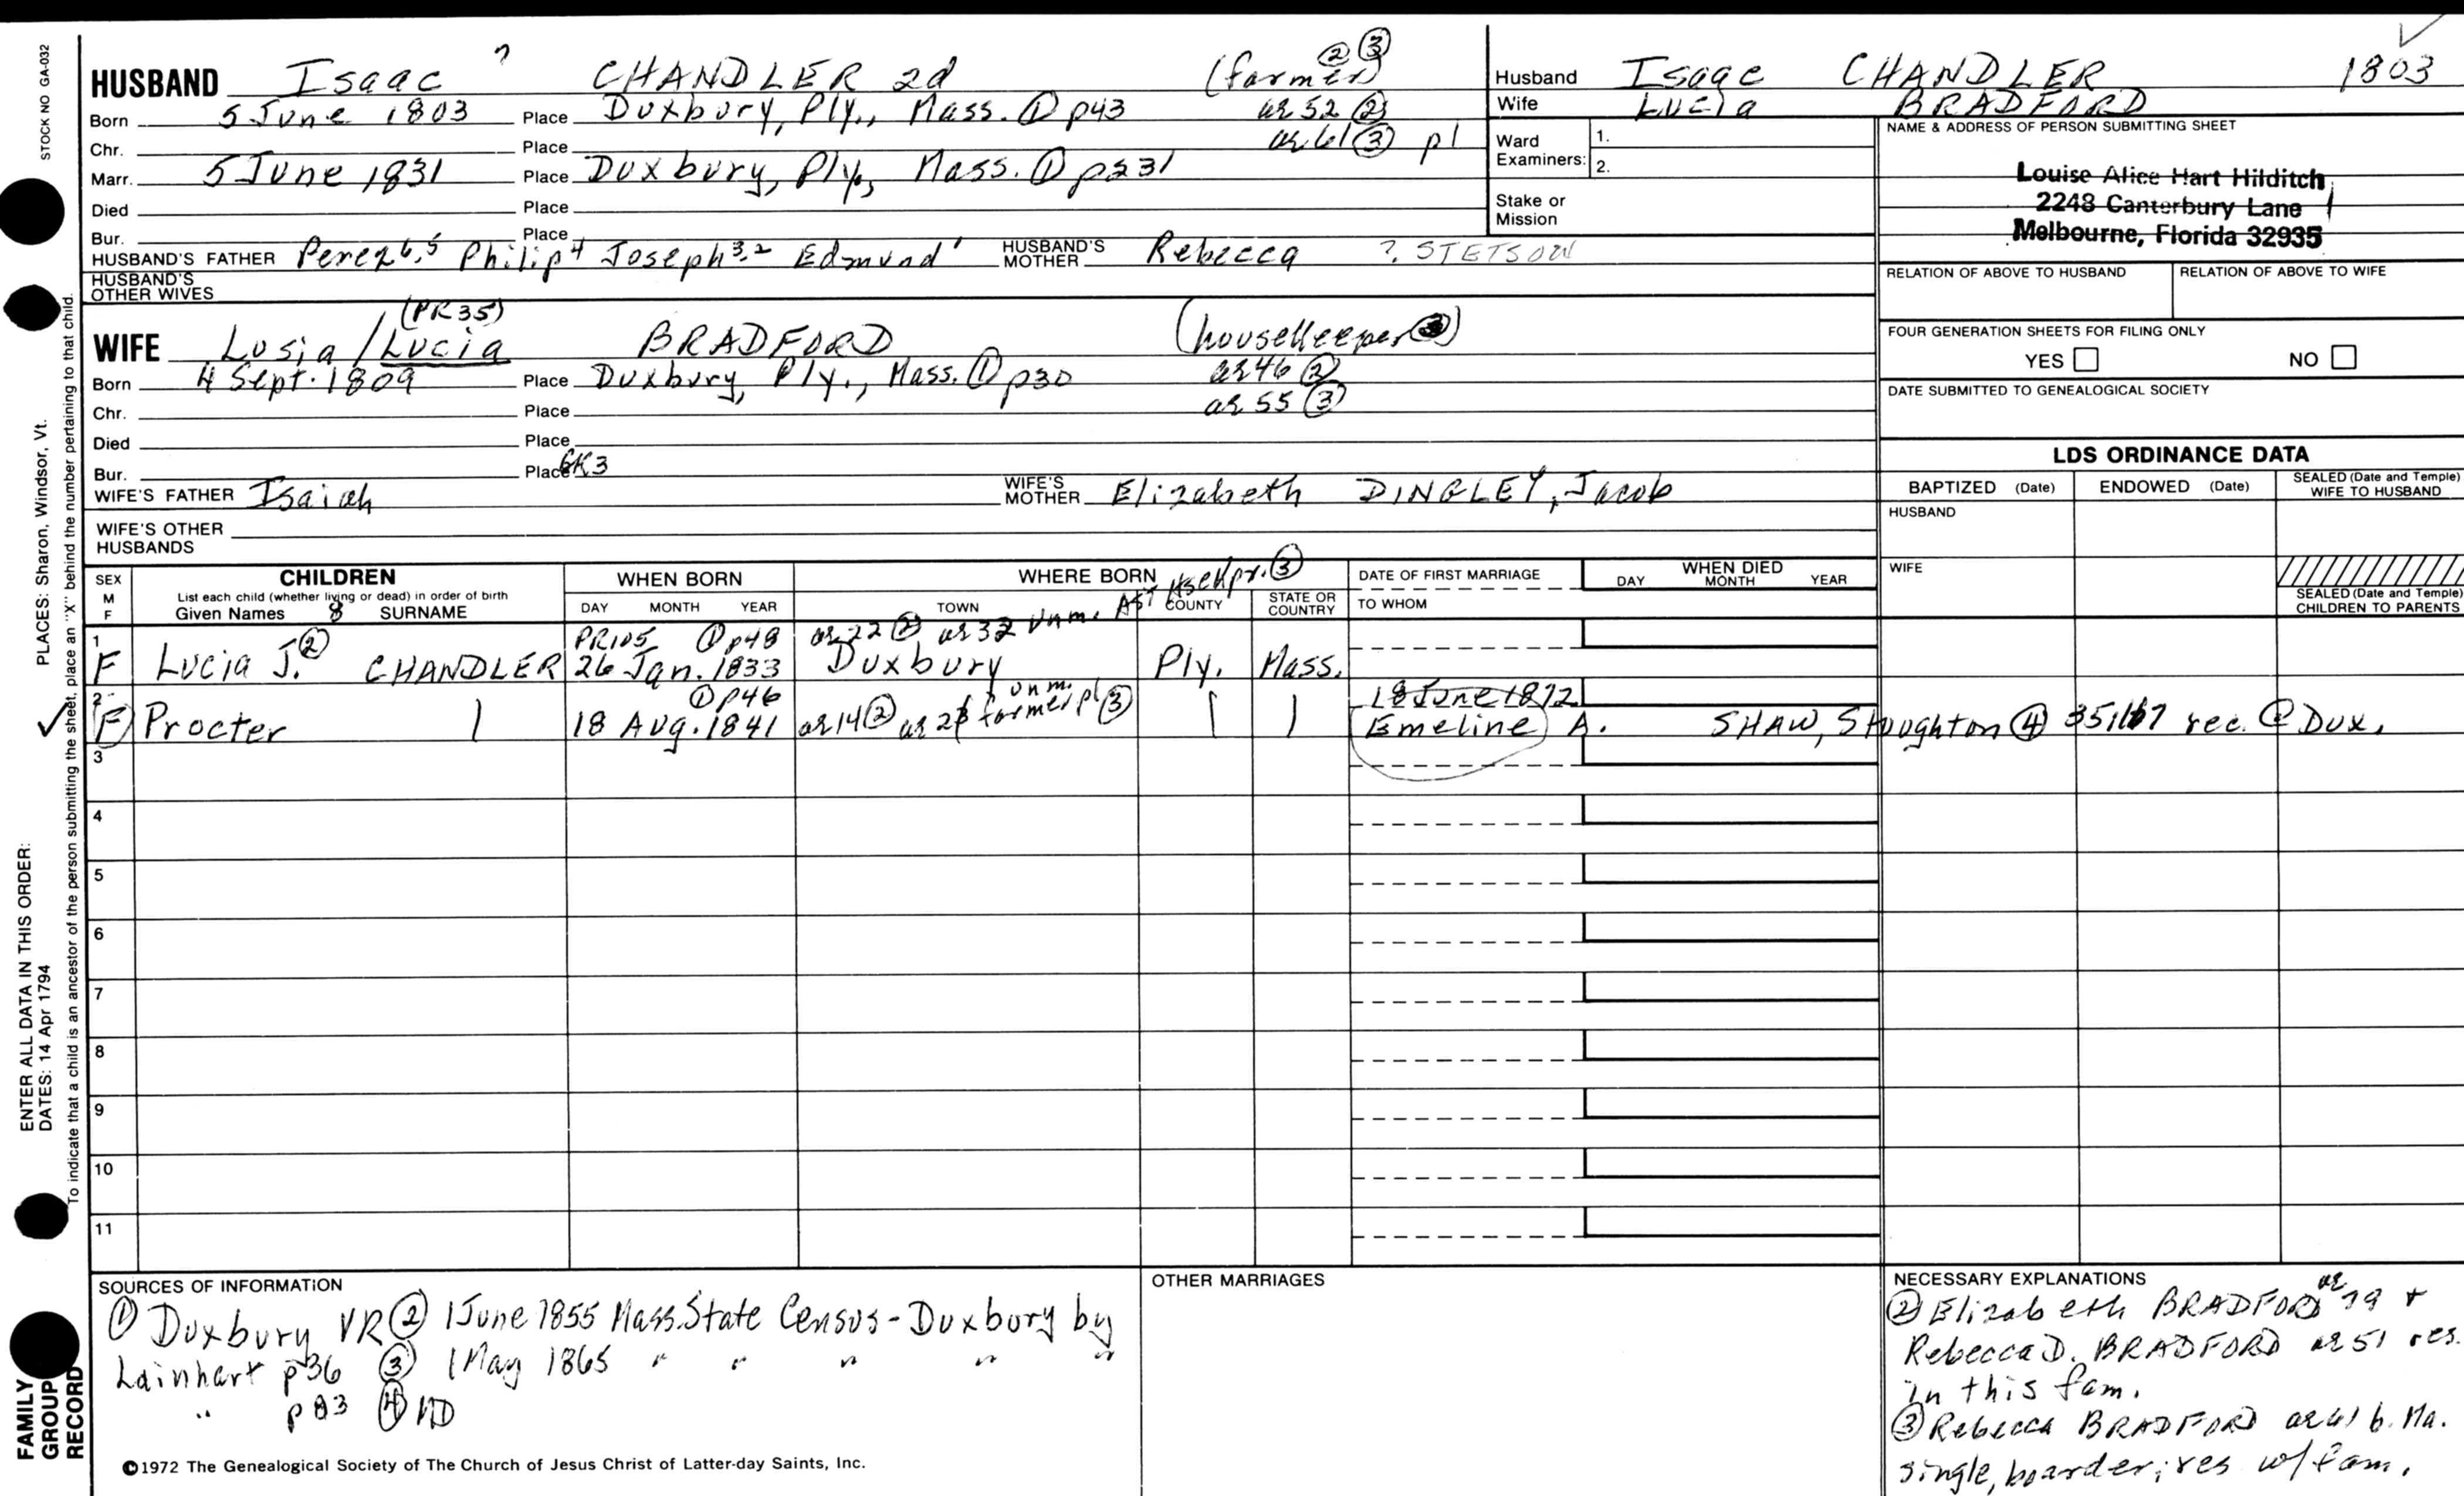 STOCK NO GA-032
PLACES: Sharon, Windsor, Vt.
ENTER ALL DATA IN THIS ORDER:
DATES: 14 Apr 1794
To indicate that a child is an ancestor of the person submitting the sheet, place an "X" behind the number pertaining to that child.
FAMILY GROUP RECORD
HUSBAND Isaac ? CHANDLER 2d (farmer) ② ③
Born 5 June 1803 Place Duxbury, Ply., Mass. ① p43 ae 52 ②
Chr. Place ae 61 ③ p1
Marr. 5 June 1831 Place Duxbury, Ply., Mass. ① p231
Died Place
Bur. Place
HUSBAND'S FATHER Perez 6,5 Philip 4 Joseph 3,2 Edmund 1 HUSBAND'S MOTHER Rebecca ?. STETSON
HUSBAND'S OTHER WIVES
(PR35)
WIFE Lusia / Lucia BRADFORD (housekeeper ③)
Born 4 Sept. 1809 Place Duxbury, Ply., Mass. ① p30 ae 46 ②
Chr. Place ae 55 ③
Died Place
Bur. Place GK3
WIFE'S FATHER Isaiah WIFE'S MOTHER Elizabeth DINGLEY, Jacob
WIFE'S OTHER HUSBANDS
Husband Isaac CHANDLER 1803
Wife Lucia BRADFORD
Ward Examiners: 1.
2.
Stake or Mission
NAME & ADDRESS OF PERSON SUBMITTING SHEET
Louise Alice Hart Hilditch
2248 Canterbury Lane
Melbourne, Florida 32935
RELATION OF ABOVE TO HUSBAND RELATION OF ABOVE TO WIFE
FOUR GENERATION SHEETS FOR FILING ONLY
YES NO
DATE SUBMITTED TO GENEALOGICAL SOCIETY
LDS ORDINANCE DATA
BAPTIZED (Date) ENDOWED (Date) SEALED (Date and Temple) WIFE TO HUSBAND
HUSBAND
WIFE
SEALED (Date and Temple) CHILDREN TO PARENTS
SEX M F
CHILDREN
List each child (whether living or dead) in order of birth
Given Names 8 SURNAME
WHEN BORN
DAY MONTH YEAR
WHERE BORN
TOWN COUNTY STATE OR COUNTRY
DATE OF FIRST MARRIAGE
TO WHOM
WHEN DIED
DAY MONTH YEAR
PR105 ① p48 ae 22 ② ae 32 unm. Ast Hsekpr. ③
1 F Lucia J. ② CHANDLER 26 Jan. 1833 Duxbury Ply. Mass.
① p46 unm. 18 June 1872
2 F Procter 18 Aug. 1841 ae 14 ② ae 23 farmer p1 ③ Emeline A. SHAW, Stoughton ④ 35:167 rec. @ Dux.
3
4
5
6
7
8
9
10
11
SOURCES OF INFORMATION
① Duxbury VR ② 1 June 1855 Mass. State Census - Duxbury by
Lainhart p36 ③ 1 May 1865 " " " " "
" p83 ④
OTHER MARRIAGES
NECESSARY EXPLANATIONS
② Elizabeth BRADFORD ae 79 +
Rebecca D. BRADFORD ae 51 res.
in this fam.
③ Rebecca BRADFORD ae 61 b. Ma.
single, boarder; res w/ fam.
©1972 The Genealogical Society of The Church of Jesus Christ of Latter-day Saints, Inc.